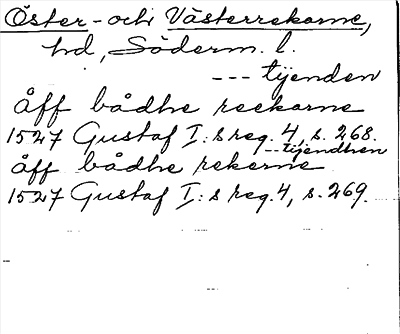 Öster- och Västerrekarne,
hd, Söderm. l.
--- tijenden
åff bådhe reekarne
1527 Gustaf I:s reg. 4, s. 268.
--- tijendhen
åff bådhe rekerne
1527 Gustaf I:s reg. 4, s. 269.